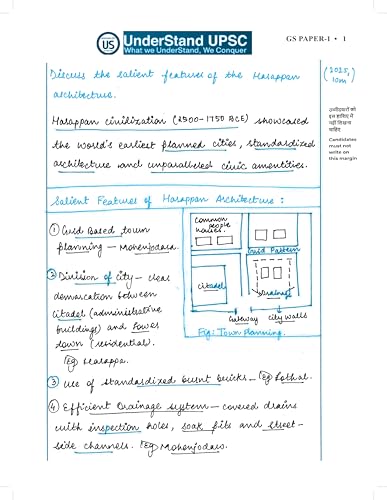 US
UnderStand UPSC
What we UnderStand, We Conquer
GS PAPER-I • 1
Discuss the salient features of the Harappan
architecture.
(2025,
10m)
उम्मीदवारों को
इस हाशिए में
नहीं लिखना
चाहिए
Candidates
must not
write on
this margin
Harappan civilization (2500-1750 BCE) showcased
the world's earliest planned cities, standardized
architecture and unparalleled civic amentities.
Salient Features of Harappan Architecture :
① Grid Based town
planning – Mohenjodaro.
② Division of city – clear
demarcation between
citadel (administrative
buildings) and lower
town (residential).
Eg Harappa.
common
people
houses.
Grid Pattern
citadel
Drainage
Gateway
city walls
Fig: Town Planning.
③ Use of standardized burnt bricks – Eg Lothal.
④ Efficient Drainage system – covered drains
with inspection holes, soak pits and street-
side channels. Eg Mohenjodaro.